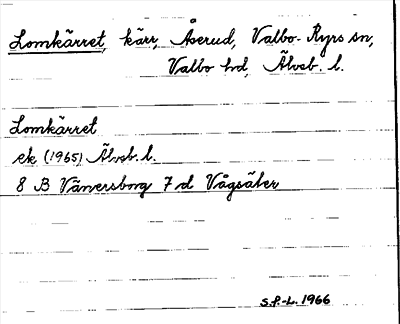 Lomkärret, kärr, Åserud, Valbo-Ryrs sn,
Valbo hd, Älvsb. l.
Lomkärret
ek (1965) Älvsb. l.
8 B Vänersborg 7 d Vågsäter
S.F.-L. 1966